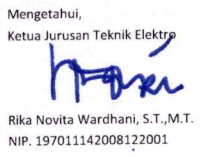 Mengetahui,
Ketua Jurusan Teknik Elektro
Rika Novita Wardhani, S.T.,M.T.
NIP. 197011142008122001